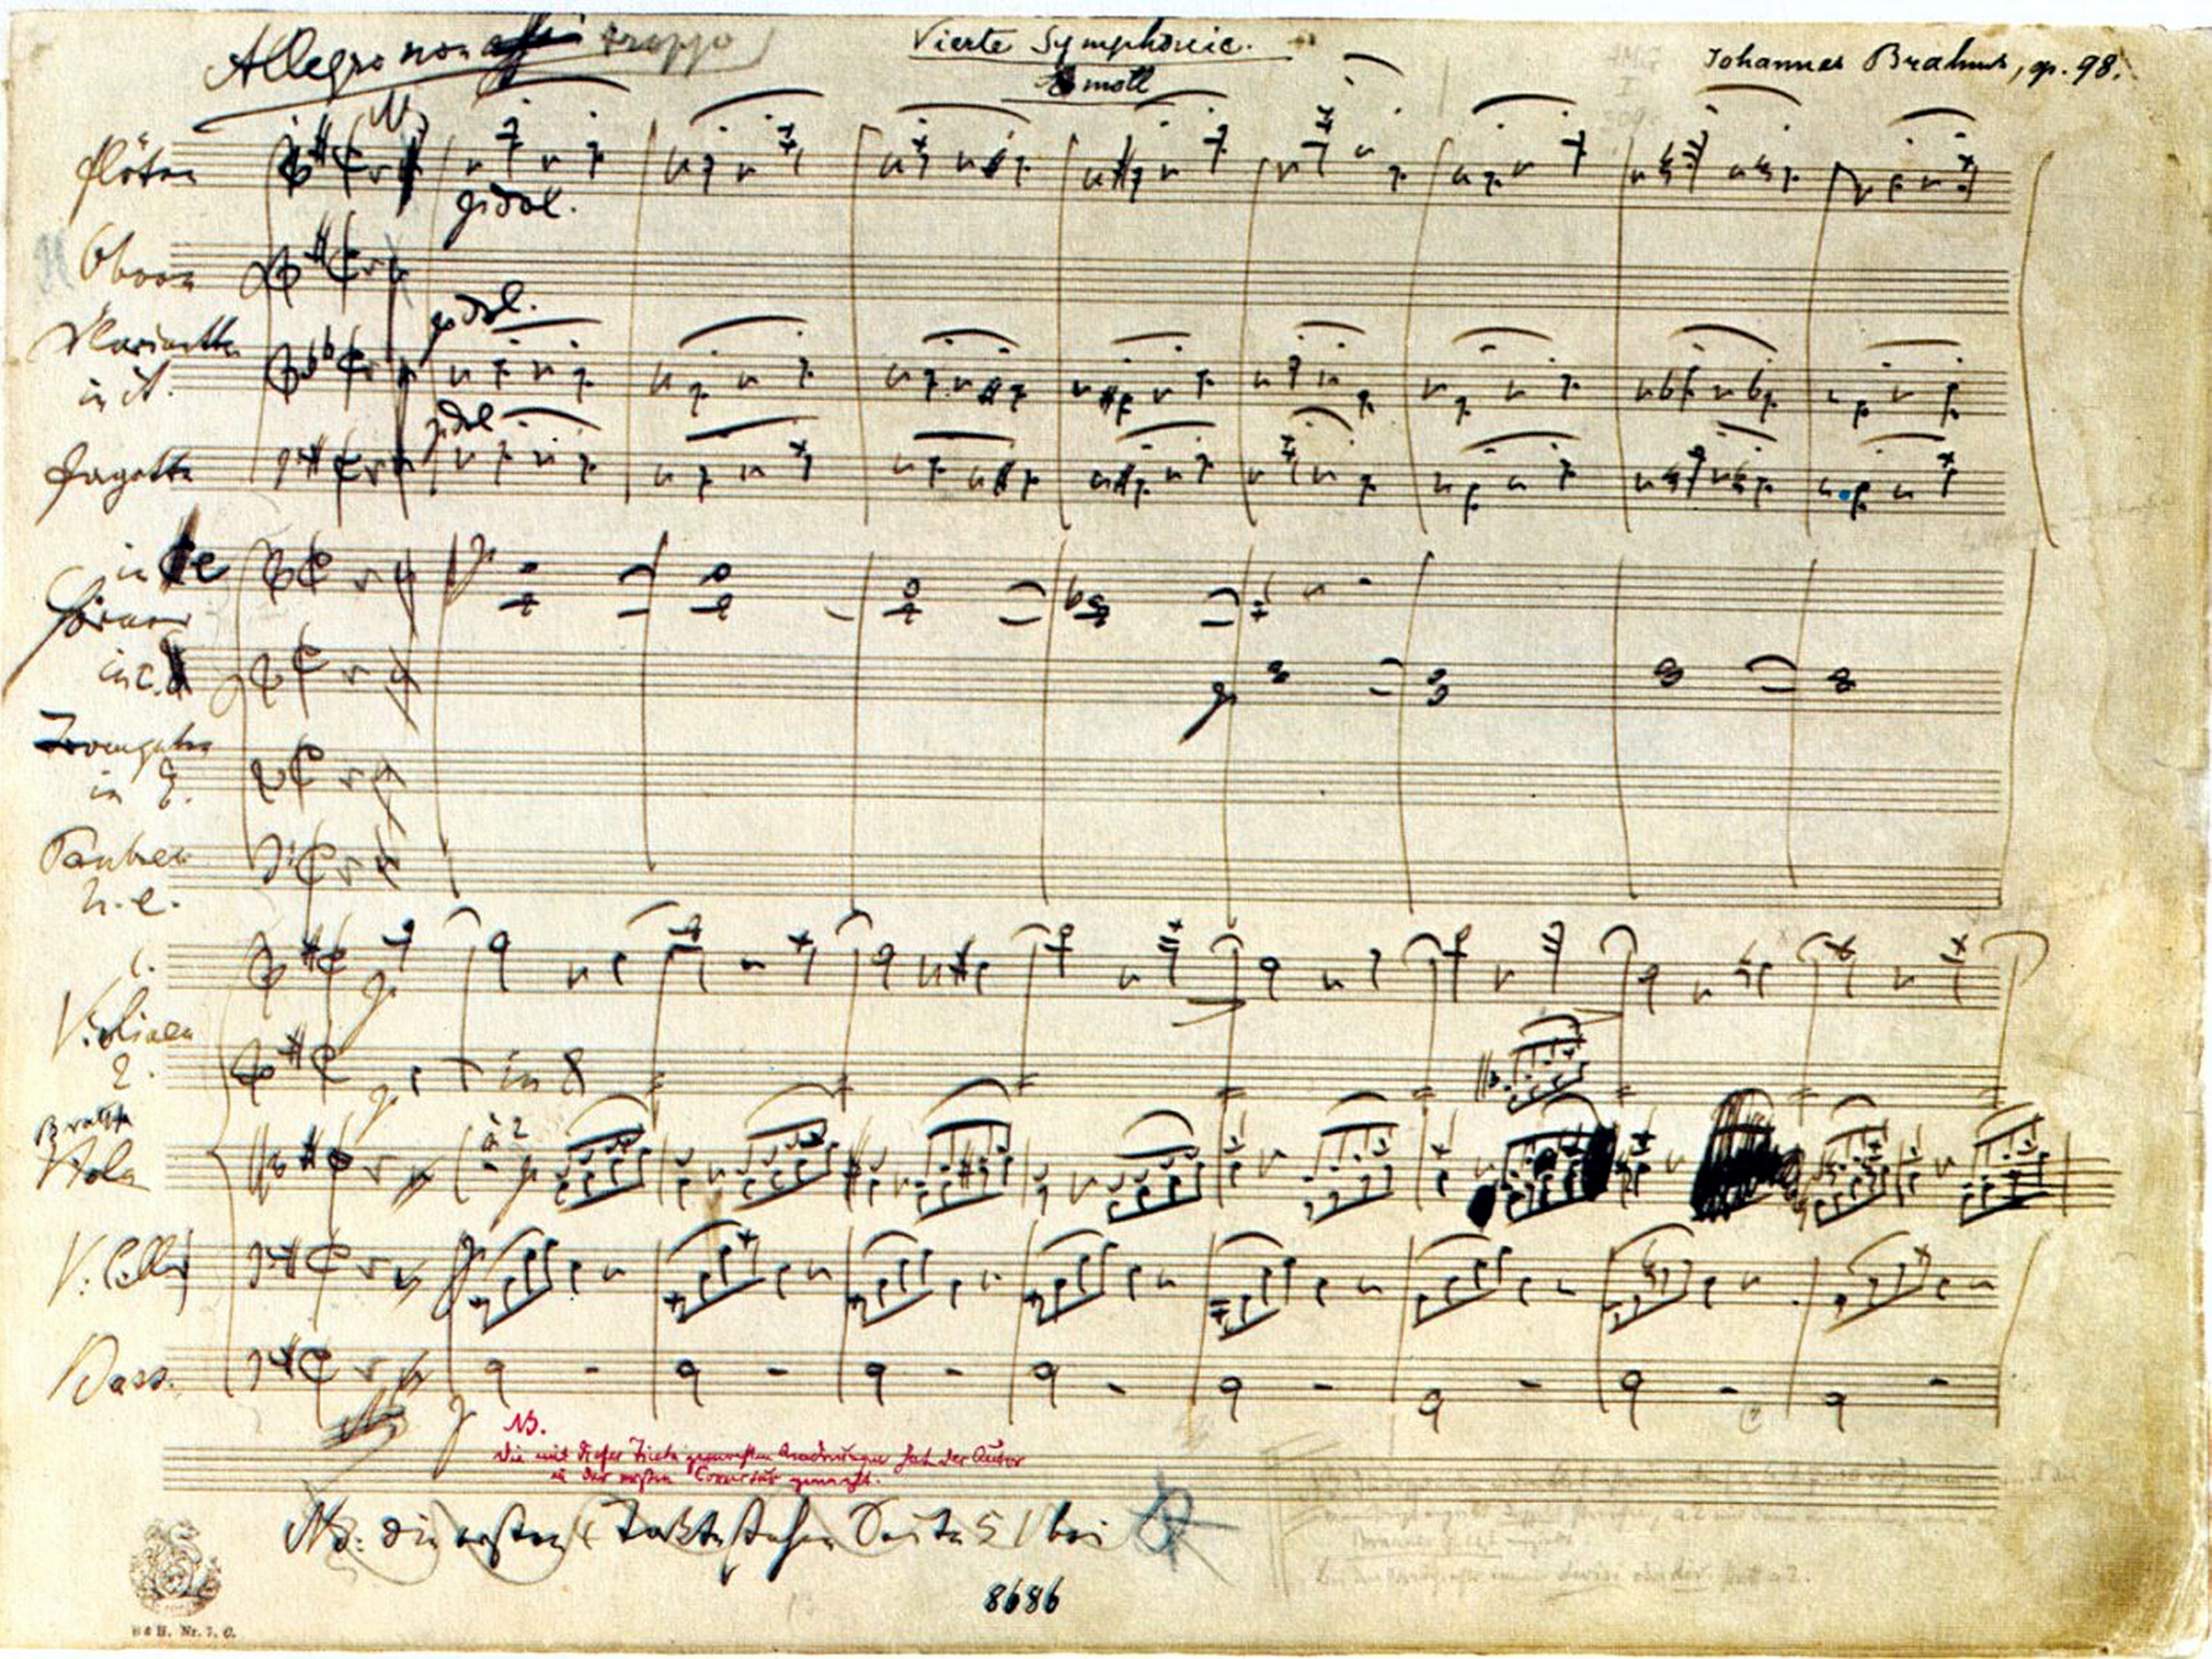 Allegro non assai troppo
Vierte Symphonie.
E moll
Johannes Brahms, op. 98.
Flöten
p dol.
Oboen
Clarinetten
in A.
p dol.
Fagotte
p dol
in e
Hörner
in C.
p
Trompeten
in E.
Pauken
h. e.
1.
Violinen
p
2.
p
in 8
Bratsche
Viola
à 2
p
V. Celli
p
Bass.
p
NB.
Die mit dieser Tinte gemachten Aenderungen hat der Autor
in der ersten Correctur gemacht.
NB: die ersten 4 Takte stehen Seite 51 bei
8686
B & H. Nr. 7. C.